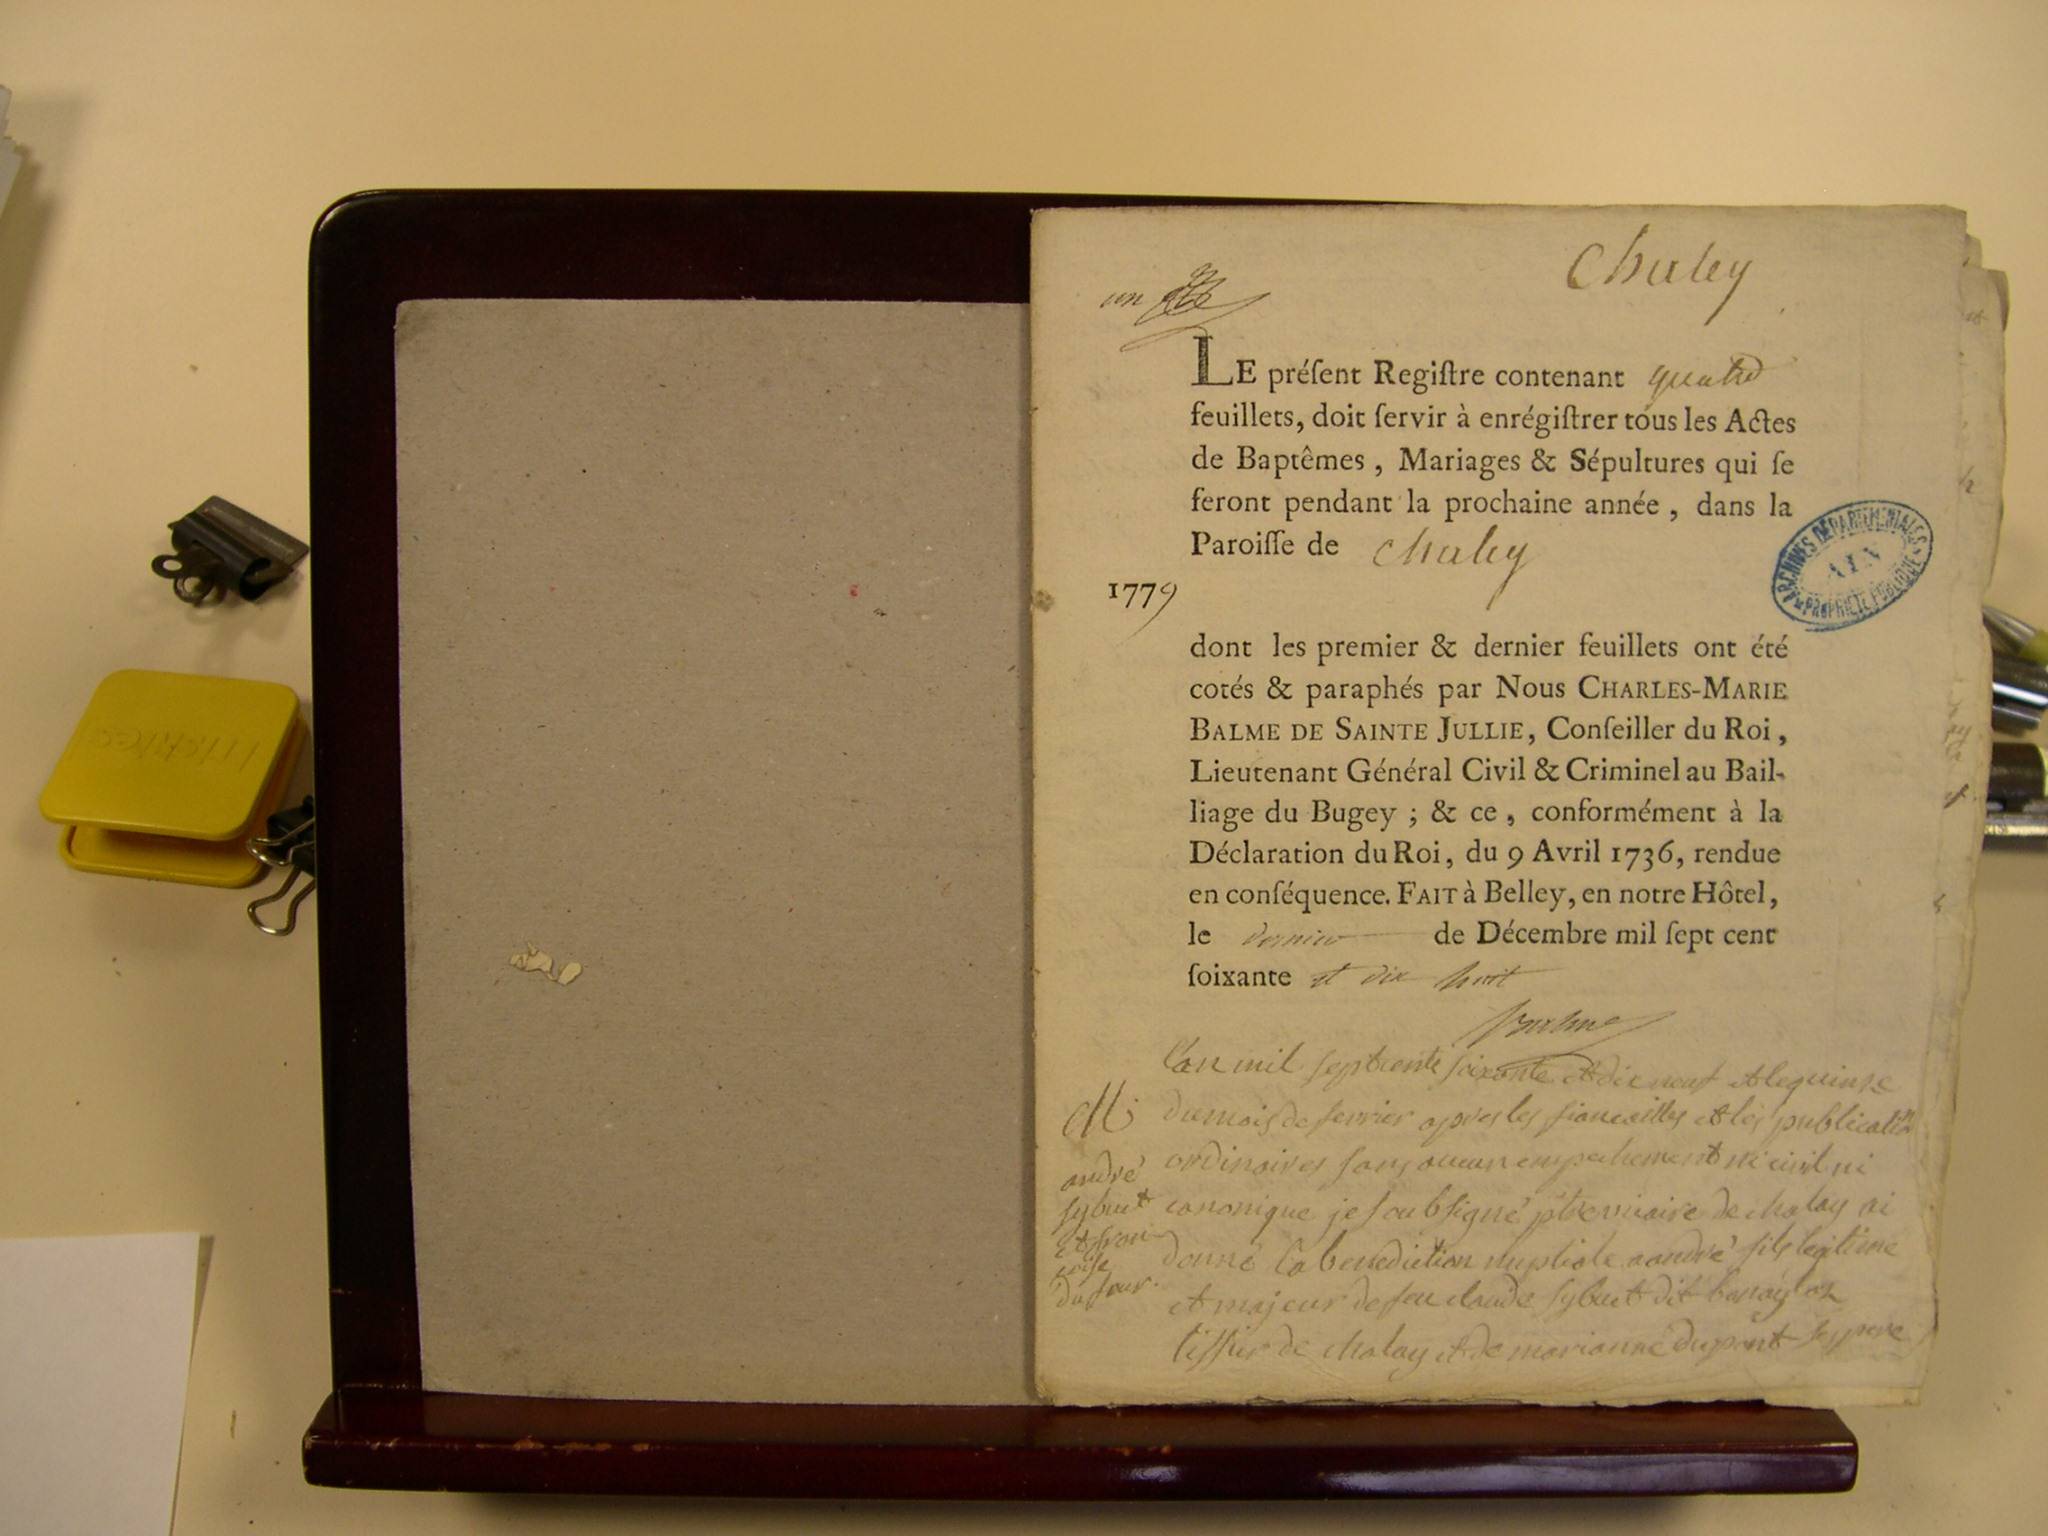 Chaley
un
LE préſent Regiſtre contenant quatre
feuillets, doit ſervir à enrégiſtrer tous les Actes
de Baptêmes, Mariages & Sépultures qui ſe
feront pendant la prochaine année, dans la
Paroiſſe de Chaley
1779
dont les premier & dernier feuillets ont été
cotés & paraphés par Nous CHARLES-MARIE
BALME DE SAINTE JULLIE, Conſeiller du Roi,
Lieutenant Général Civil & Criminel au Bail-
liage du Bugey; & ce, conformément à la
Déclaration du Roi, du 9 Avril 1736, rendue
en conſéquence. FAIT à Belley, en notre Hôtel,
le dernier de Décembre mil ſept cent
ſoixante et dix huit
Balme
ARCHIVES DÉPARTEMENTALES
AIN
PROPRIÉTÉ PUBLIQUE
L'an mil septcente soixante et dix neuf et le quinze
du mois de fevrier apres les fiancailles et les publication
ordinaires sans aucun empechement ni civil ni
canonique je soubsigné ptre vicaire de chaley ai
donné la benediction nuptiale a andré fils legitime
et majeur de feu claude sybuet dit
tissier de chaley et de marianne dupont ses pere
M
andré
sybuet
et fran
coise
dufour.